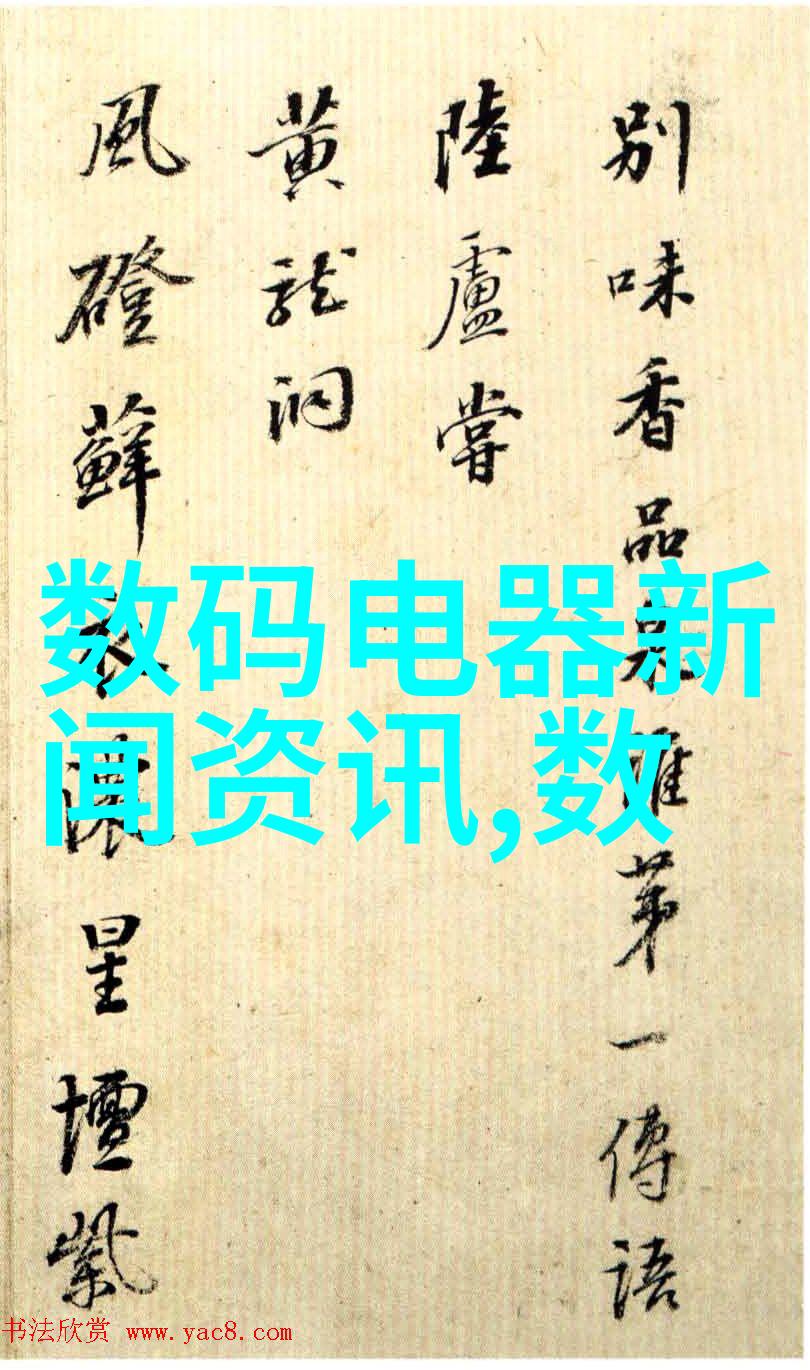 別味香品泉第一傳語
陸盧嘗
黃龍洞
風磴蘚衣濃星壇紫
数码电器新
闻资讯,数
书法欣赏 www.yac8.com